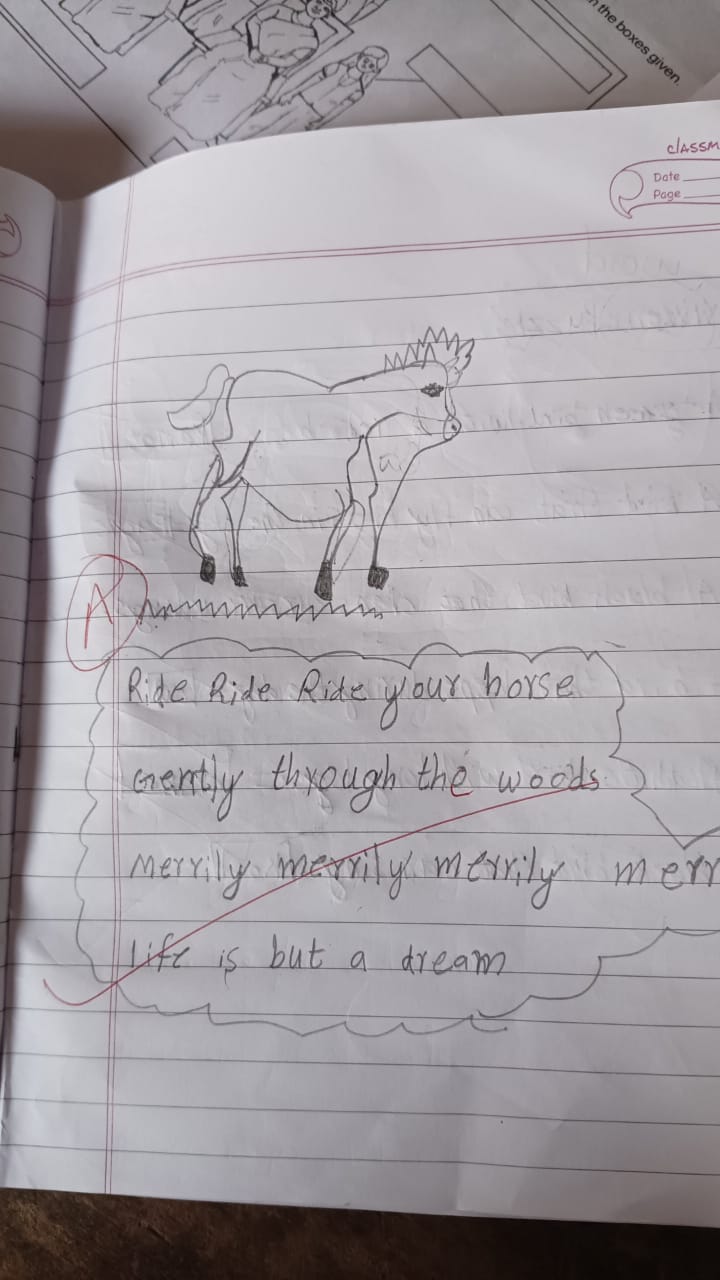 n the boxes given.
classm
Date
Page
A
Ride Ride Ride your horse
Gently through the woods
Merrily merrily merrily merr
life is but a dream